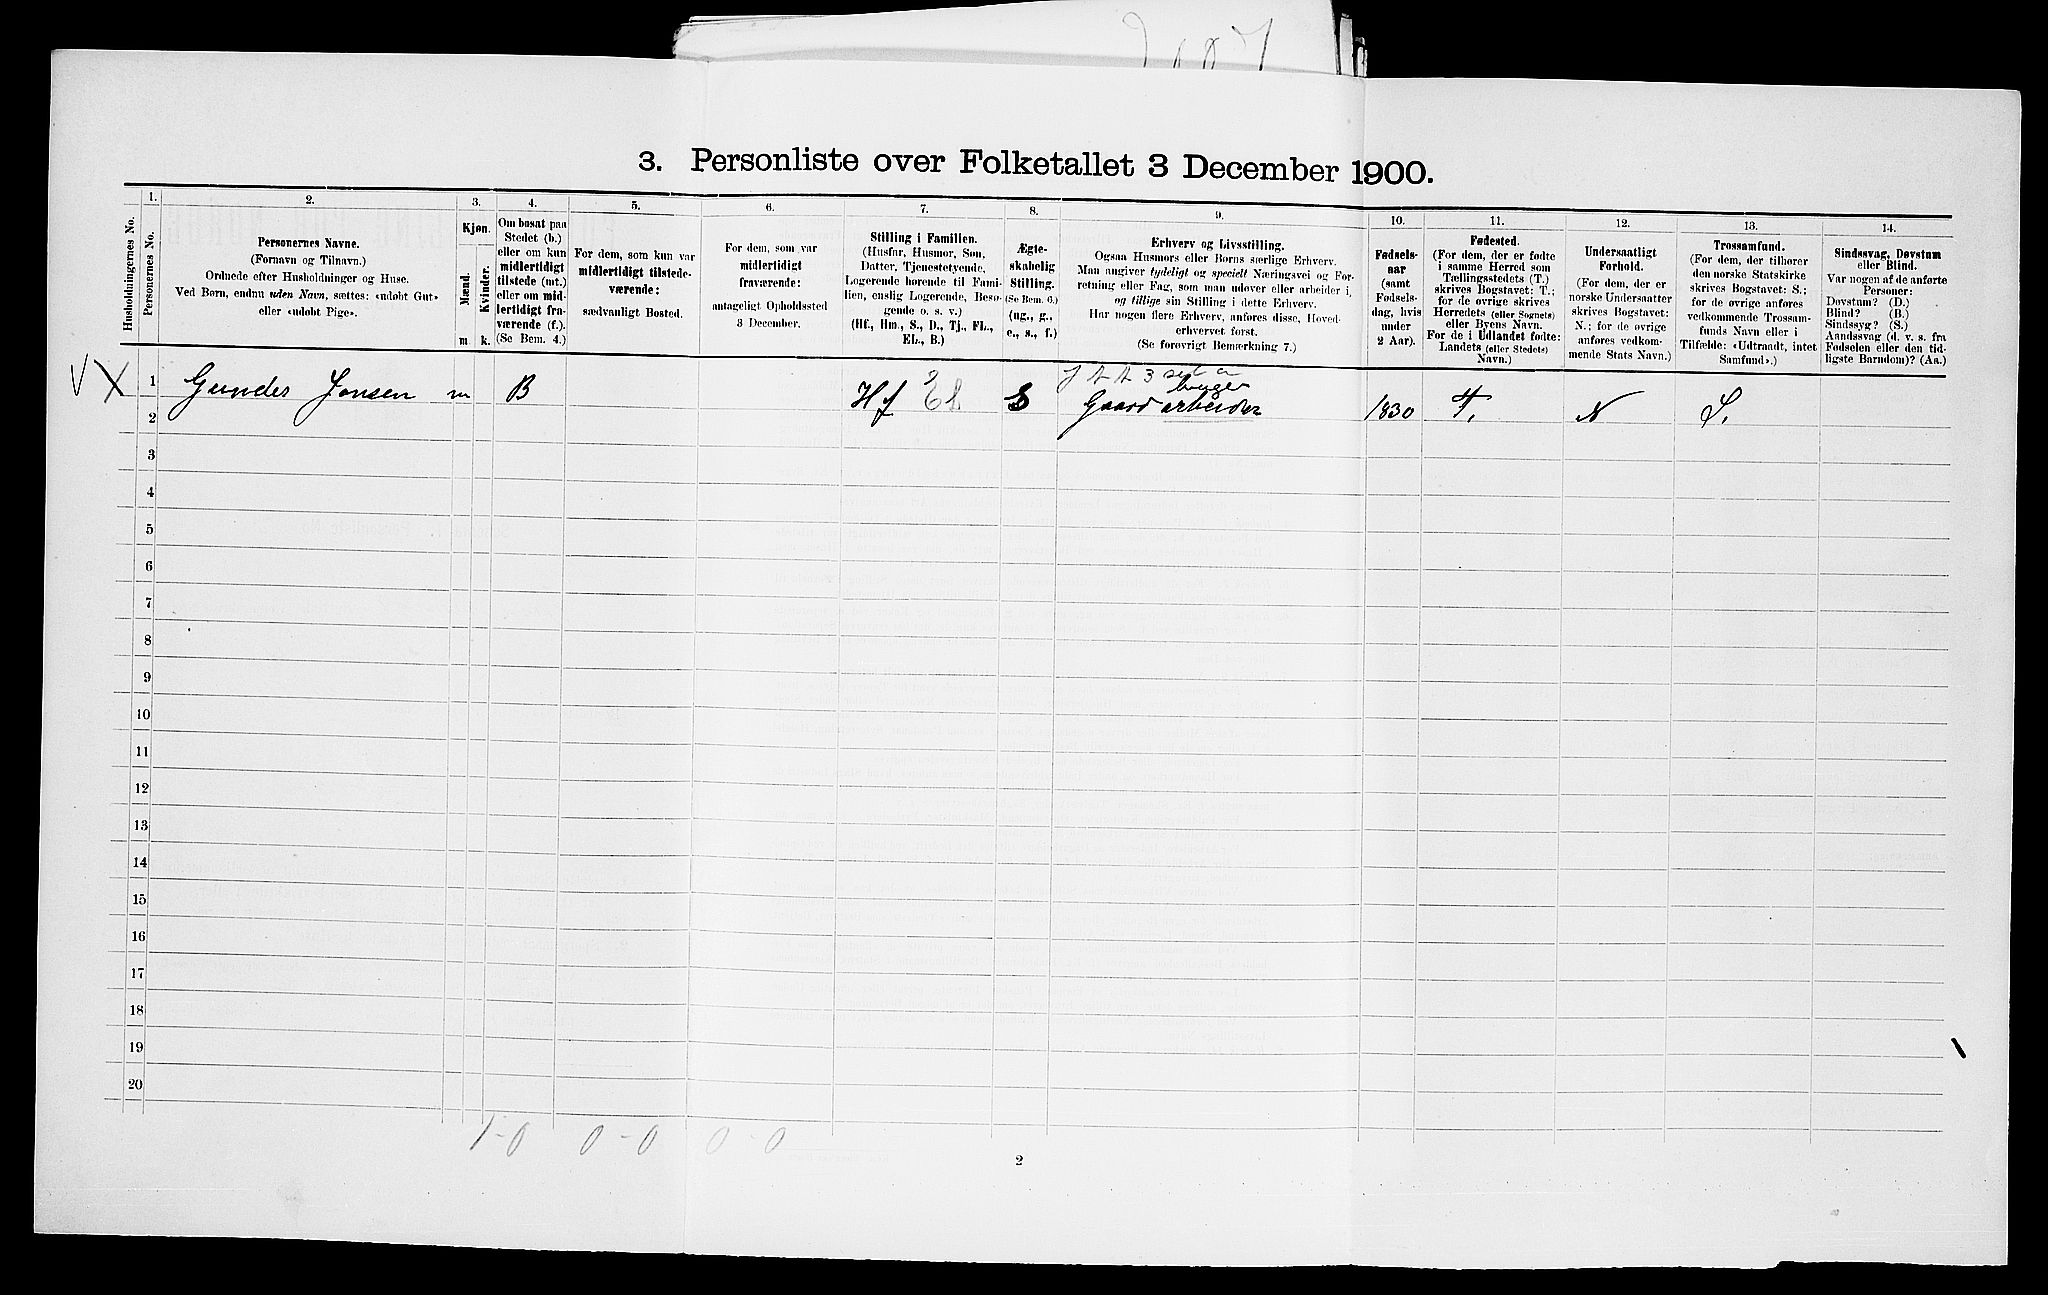 3. Personliste over Folketallet 3 December 1900.
Husholdningernes No.
1.
Personernes No.
2.
Personernes Navne.
(Fornavn og Tilnavn.)
Ordnede efter Husholdninger og Huse.
Ved Børn, endnu uden Navn, sættes: «udøbt Gut»
eller «udøbt Pige».
3.
Kjøn.
Mænd.
Kvinder.
m k.
4.
Om bosat paa
Stedet (b.)
eller om kun
midlertidigt
tilstede (mt.)
eller om mid-
lertidigt fra-
værende (f.).
(Se Bem. 4.)
5.
For dem, som kun var
midlertidigt tilstede-
værende:
sædvanligt Bosted.
6.
For dem, som var
midlertidigt
fraværende:
antageligt Opholdssted
3 December.
7.
Stilling i Familien.
(Husfar, Husmor, Søn,
Datter, Tjenestetyende,
Logerende hørende til Fami-
lien, enslig Logerende, Besø-
gende o. s. v.)
(Hf., Hm., S., D., Tj., FL.,
EL., B.)
8.
Ægte-
skabelig
Stilling.
(Se Bem. 6.)
(ug., g.,
e., s., f.)
9.
Erhverv og Livsstilling.
Ogsaa Husmors eller Børns særlige Erhverv.
Man angiver tydeligt og specielt Næringsvei og For-
retning eller Fag, som man udøver eller arbeider i,
og tillige sin Stilling i dette Erhverv.
Har nogen flere Erhverv, anføres disse, Hoved-
erhvervet først.
(Se forøvrigt Bemærkning 7.)
10.
Fødsels-
aar
(samt
Fødsels-
dag, hvis
under
2 Aar).
11.
Fødested.
(For dem, der er fødte
i samme Herred som
Tællingsstedets (T.)
skrives Bogstavet: T.;
for de øvrige skrives
Herredets (eller Sognets)
eller Byens Navn.
For de i Udlandet fødte:
Landets (eller Stedets)
Navn.)
12.
Undersaatligt
Forhold.
(For dem, der er
norske Undersaatter
skrives Bogstavet:
N.; for de øvrige
anføres vedkom-
mende Stats Navn.)
13.
Trossamfund.
(For dem, der tilhører
den norske Statskirke
skrives Bogstavet: S.;
for de øvrige anføres
vedkommende Trossam-
funds Navn eller i
Tilfælde: «Udtraadt, intet
Samfund».)
14.
Sindssvag, Døvstum
eller Blind.
Var nogen af de anførte
Personer:
Døvstum? (D.)
Blind? (B.)
Sindssyg? (S.)
Aandssvag (d. v. s. fra
Fødselen eller den tid-
ligste Barndom)? (Aa.)
V X 1 Gunder Jonsen m B Hf EL Gaardbruger
arbeider 1830 T. N S.
2
3
4
5
6
7
8
9
10
11
12
13
14
15
16
17
18
19
20
1-0 0-0 0-0
2